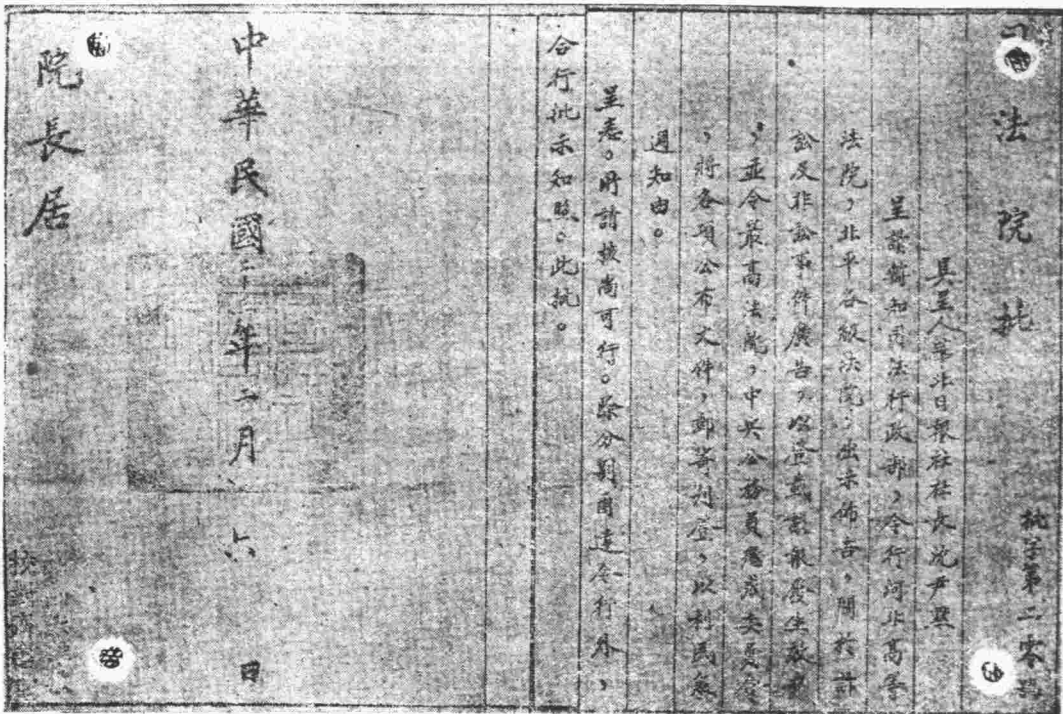 司法院批
批字第二零號
具呈人華北日報社社長沈尹默
呈請飭知司法行政部,令行河北高等
法院,北平各級法院,出示佈告,關於訴
訟及非訟事件廣告,登載 報發生效
,並令最高法院,中央公務員懲戒委員會
,將各項公布文件,郵寄刊登,以利民眾
週知由。
呈悉。所請核尚可行。除分別函達令行外,
合行批示知照。此批。
中華民國二十一年二月六日
院長居